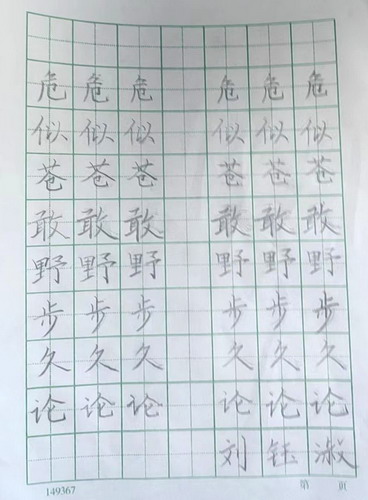 危危危 危危危
似似似 似似似
苍苍苍 苍苍苍
敢敢敢 敢敢敢
野野野 野野野
步步步 步步步
久久久 久久久
论论论 论论论
刘钰淑
149367 第 页